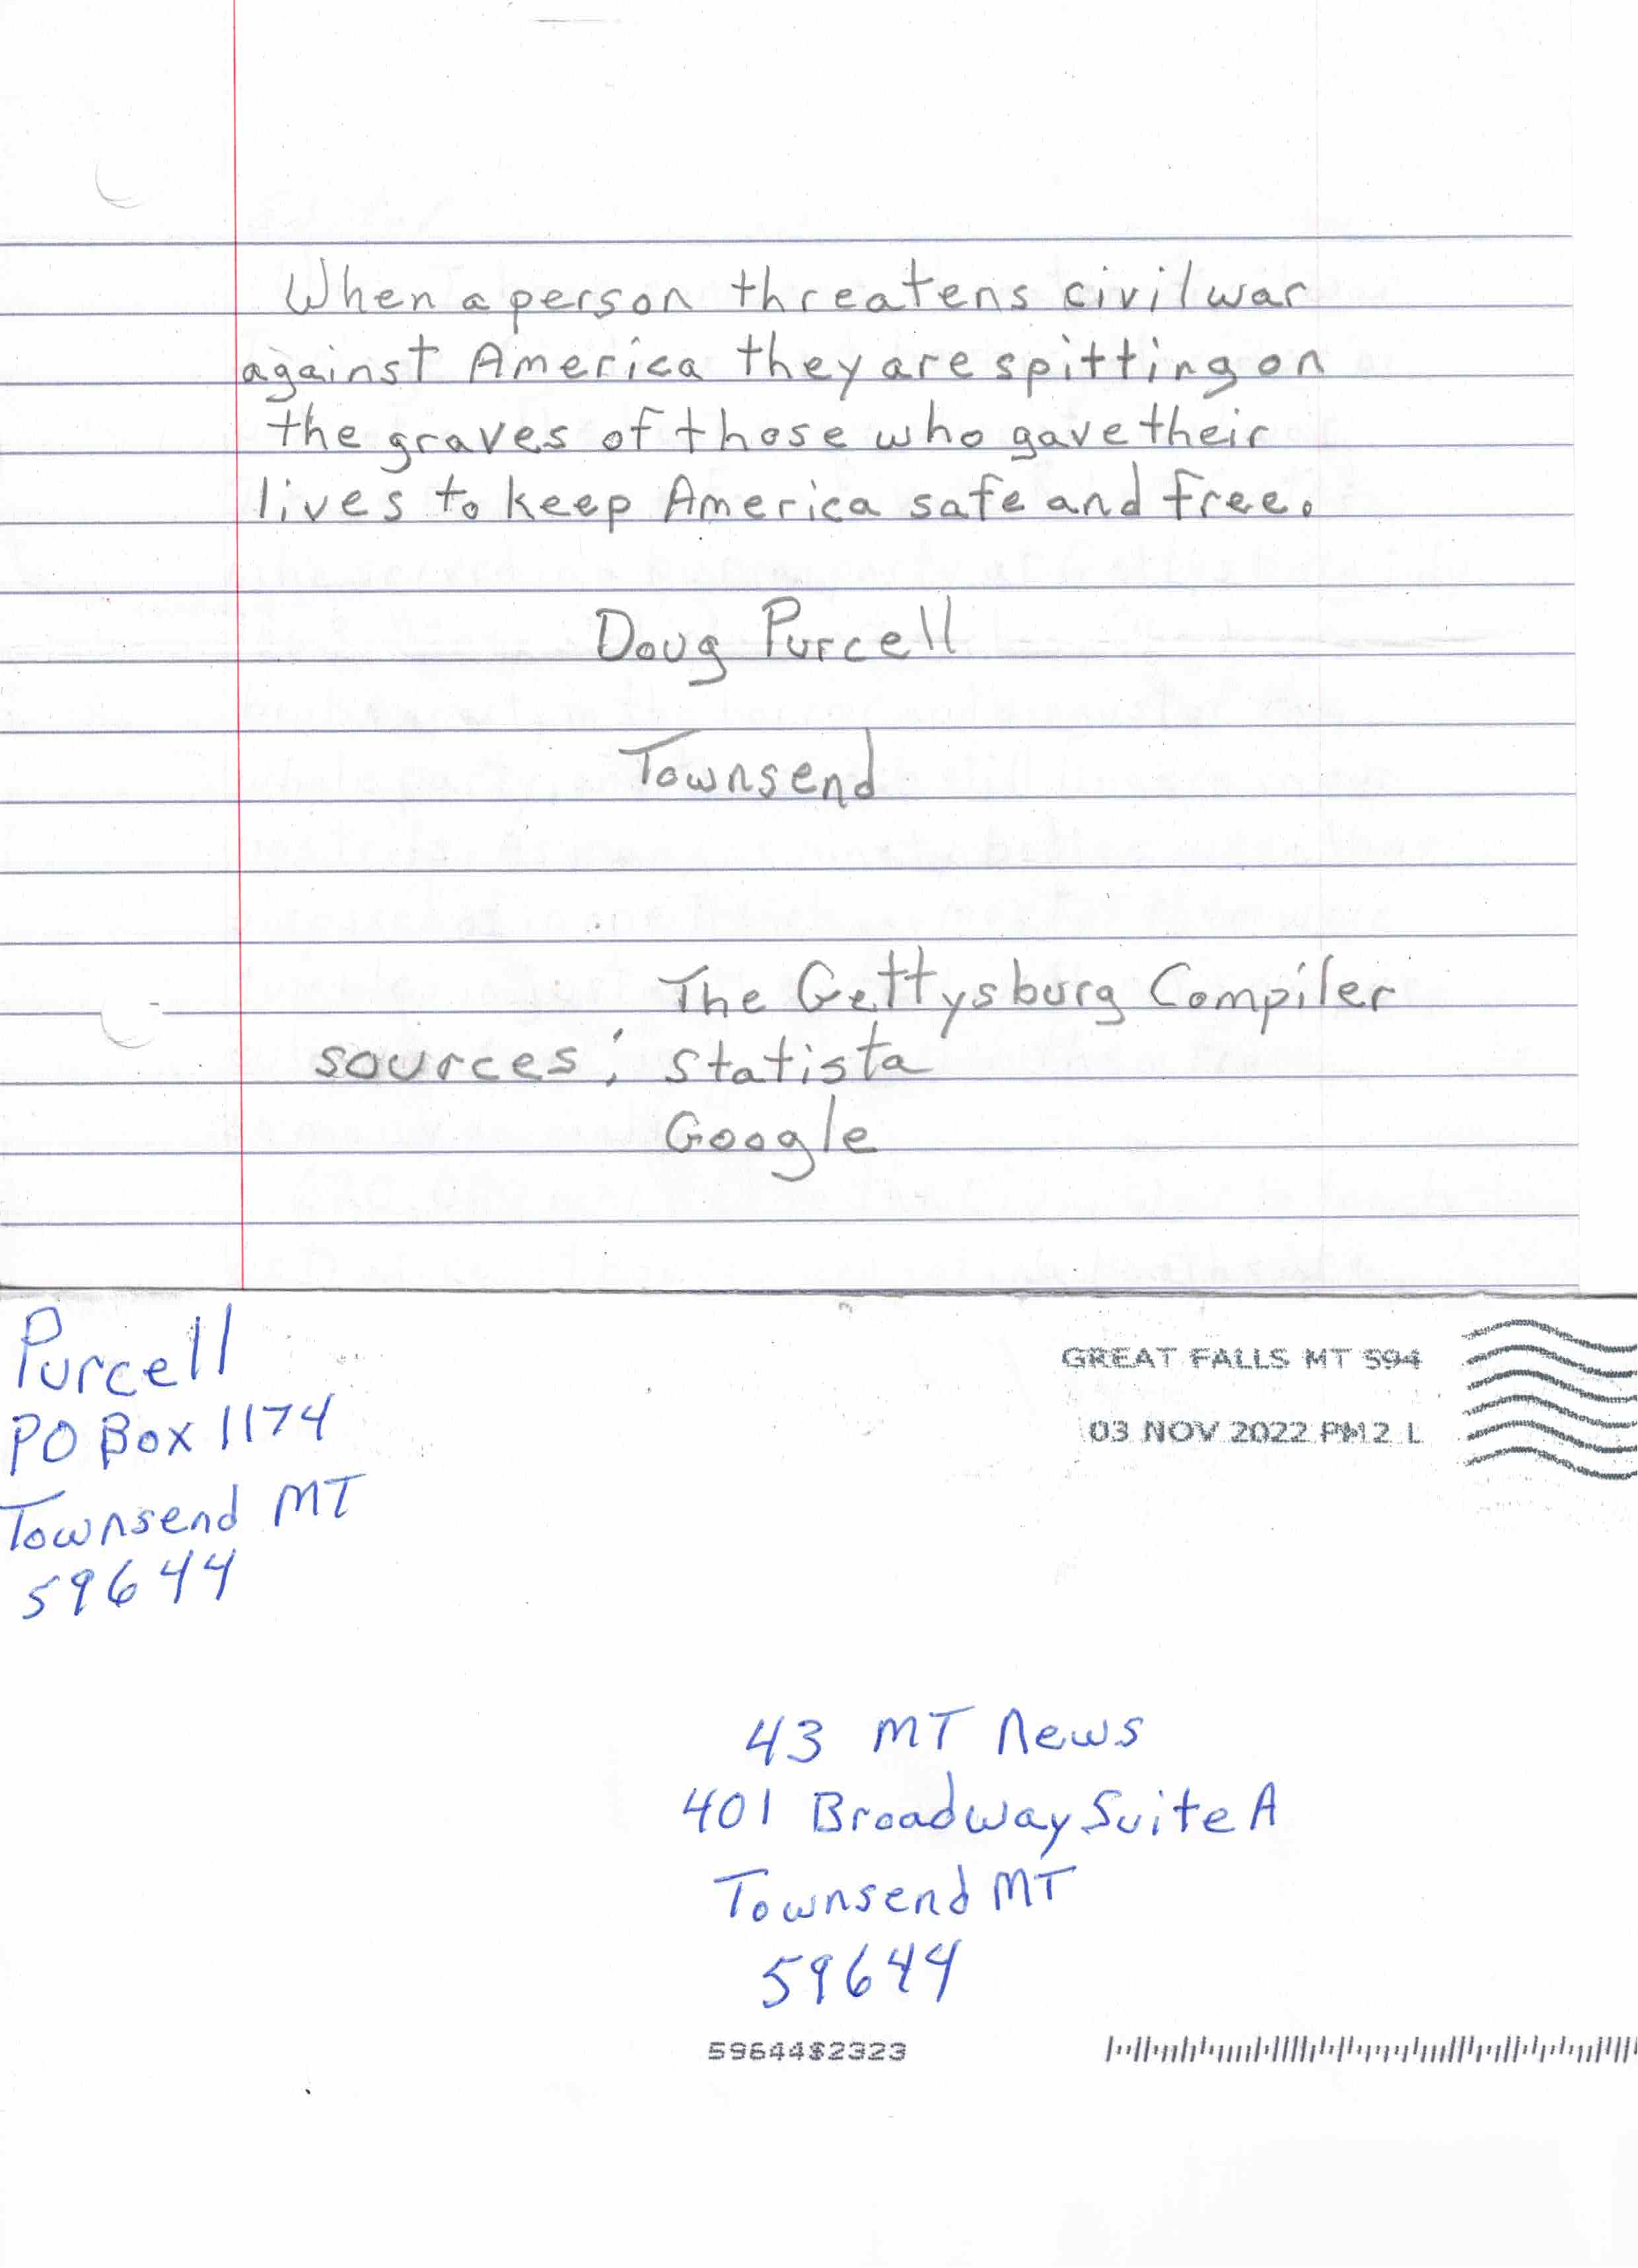 When a person threatens civil war
against America they are spitting on
the graves of those who gave their
lives to keep America safe and free.
Doug Purcell
Townsend
The Gettysburg Compiler
sources: Statista
Google
Purcell
PO Box 1174
Townsend MT
59644
GREAT FALLS MT 594
03 NOV 2022 PM 2 L
43 MT News
401 Broadway Suite A
Townsend MT
59644
59644$2323